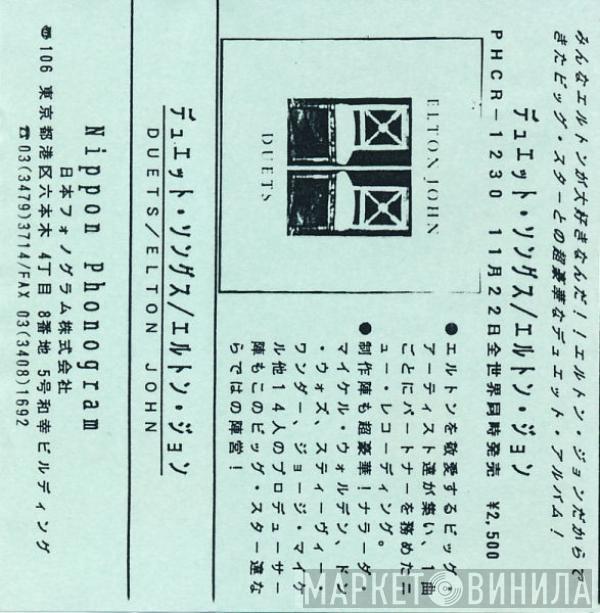 みんなエルトンが大好きなんだ!!エルトン・ジョンだからで
きたビッグ・スターとの超豪華なデュエット・アルバム!
デュエット・ソングス/エルトン・ジョン
PHCR-1230 11月22日全世界同時発売 ¥2,500
ELTON JOHN
DUETS
●エルトンを敬愛するビッグ・
アーティスト達が集い、1曲
ごとにパートナーを務めたニ
ュー・レコーディング。
●制作陣も超豪華!ナラーダ・
マイケル・ウォルデン、ドン
・ウォズ、スティーヴィー・
ワンダー、ジョージ・マイケ
ル他14人のプロデューサー
陣もこのビッグ・スター達な
らではの陣営!
デュエット・ソングス/エルトン・ジョン
DUETS/ELTON JOHN
Nippon phonogram
日本フォノグラム株式会社
〠106 東京都港区六本木 4丁目 8番地 5号和幸ビルディング
☎03(3479)3714/FAX 03(3408)1692
МАРКЕТ ВИНИЛА